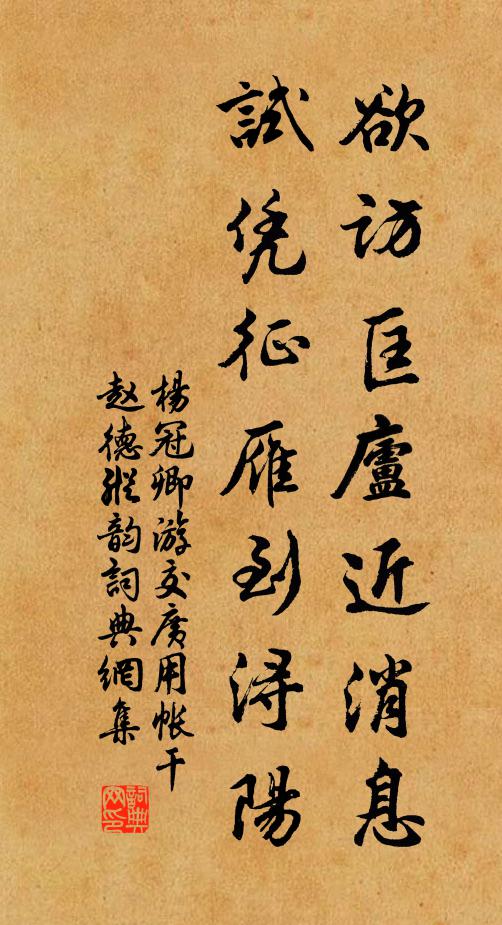 欲访匡廬近消息
試凭征雁到潯陽
楊冠卿游交廣用帐干
赵德縱韵詞典網集
詞典
网印